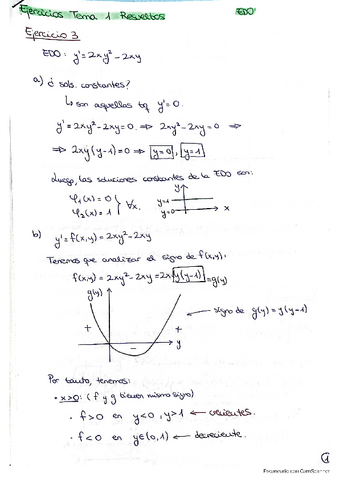 Ejercicios Tema 1 Resueltos EDO
Ejercicio 3
EDO: y' = 2xy² - 2xy
a) ¿ sols. constantes?
↳ son aquellas tq y' = 0.
y' = 2xy² - 2xy = 0. ⇒ 2xy² - 2xy = 0 ⇒
⇒ 2xy(y-1) = 0 ⇒ y=0, y=1
Luego, las soluciones constantes de la EDO son:
φ₁(x) = 0
φ₂(x) = 1 } ∀x.
y
y=1
y=0
x
b) y' = f(x,y) = 2xy² - 2xy
Tenemos que analizar el signo de f(x,y):
f(x,y) = 2xy² - 2xy = 2x y(y-1) = g(y)
g(y)
signo de g(y) = y(y-1)
+ - + y
Por tanto, tenemos:
· x>0: (f y g tienen mismo signo)
· f>0 en y<0, y>1 ← crecientes.
· f<0 en y∈(0,1) ← decreciente.
1
Escaneado con CamScanner